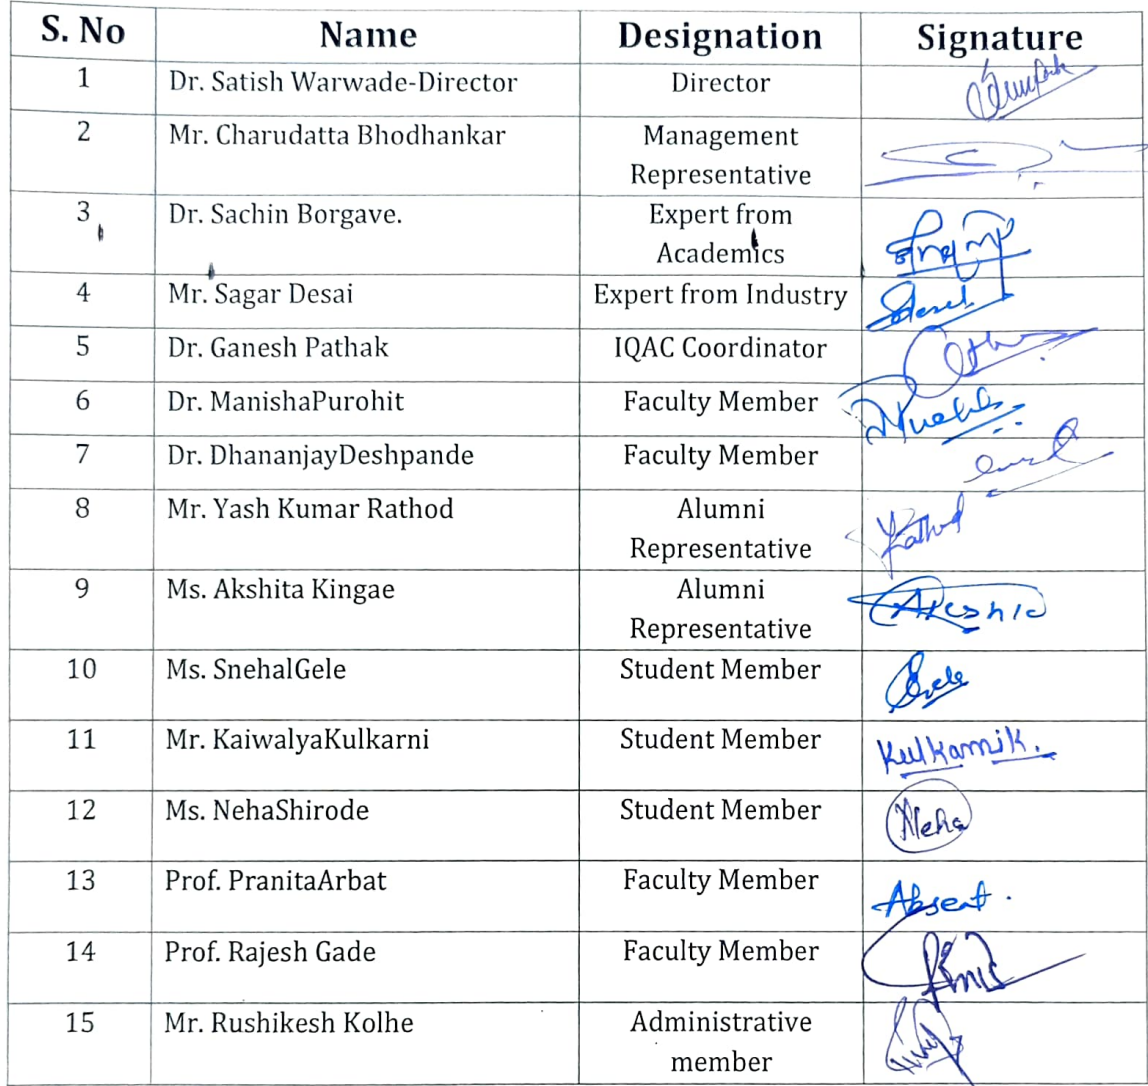 S. No Name Designation Signature
1 Dr. Satish Warwade-Director Director
2 Mr. Charudatta Bhodhankar Management
Representative
3 Dr. Sachin Borgave. Expert from
Academics
4 Mr. Sagar Desai Expert from Industry
5 Dr. Ganesh Pathak IQAC Coordinator
6 Dr. ManishaPurohit Faculty Member
7 Dr. DhananjayDeshpande Faculty Member
8 Mr. Yash Kumar Rathod Alumni
Representative Rathod
9 Ms. Akshita Kingae Alumni
Representative
10 Ms. SnehalGele Student Member
11 Mr. KaiwalyaKulkarni Student Member Kulkarnik.
12 Ms. NehaShirode Student Member Neha
13 Prof. PranitaArbat Faculty Member Absent.
14 Prof. Rajesh Gade Faculty Member
15 Mr. Rushikesh Kolhe Administrative
member